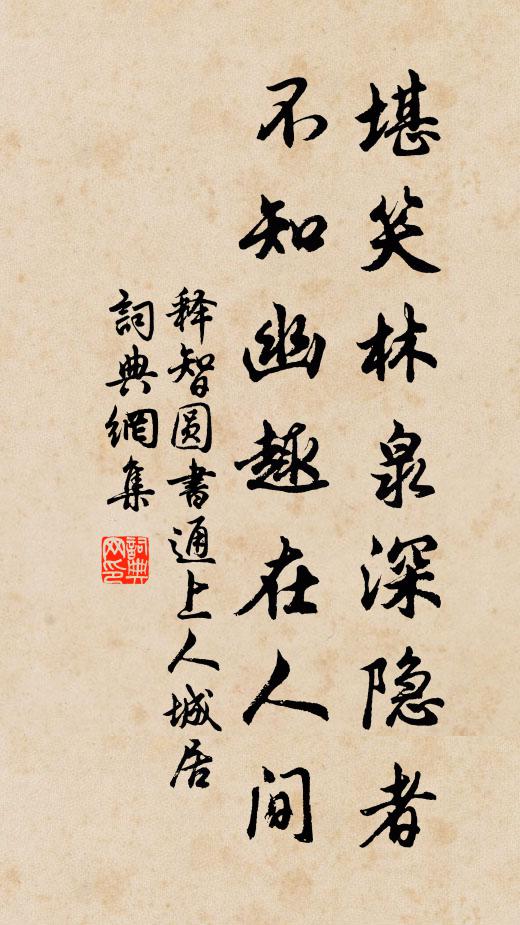 堪笑林泉深隐者
不知幽趣在人间
释智圆書通上人城居
詞典網集
詞典网印